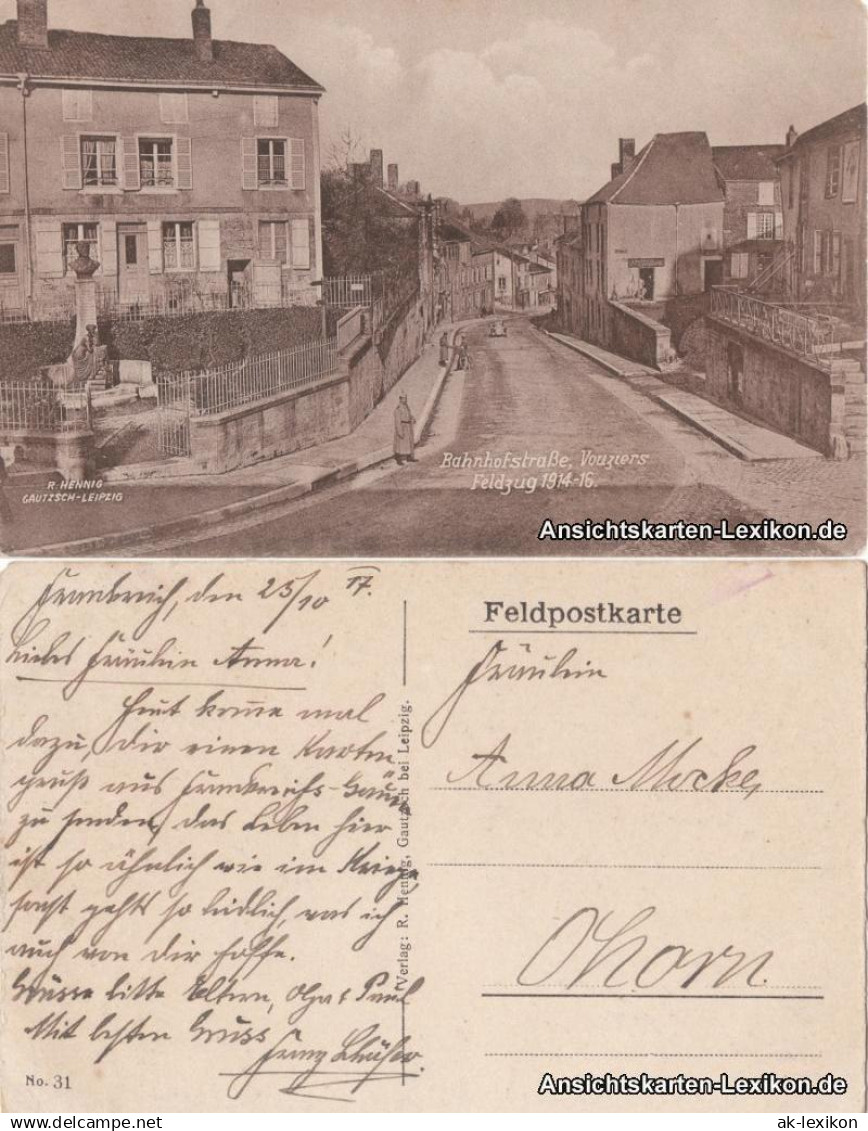 R. HENNIG
GAUTZSCH-LEIPZIG
Bahnhofstraße, Vouziers
Feldzug 1914-16.
Ansichtskarten-Lexikon.de
Frankreich, den 25/10 17.
Liebes Fräulein Anna!
Heut komme mal
dazu, Dir einen Karten
gruß aus Frankreichs-Gauen
zu senden, das Leben hier
ist so ähnlich wie im Kriege,
sonst gehts so leidlich, was ich
auch von Dir hoffe.
Grüsse bitte Eltern, Olga & Paul
Mit besten Gruss
Verlag: R. Hennig, Gautzsch bei Leipzig.
No. 31
Feldpostkarte
Fräulein
Anna Mocke,
Ohorn
Ansichtskarten-Lexikon.de
ak-lexikon